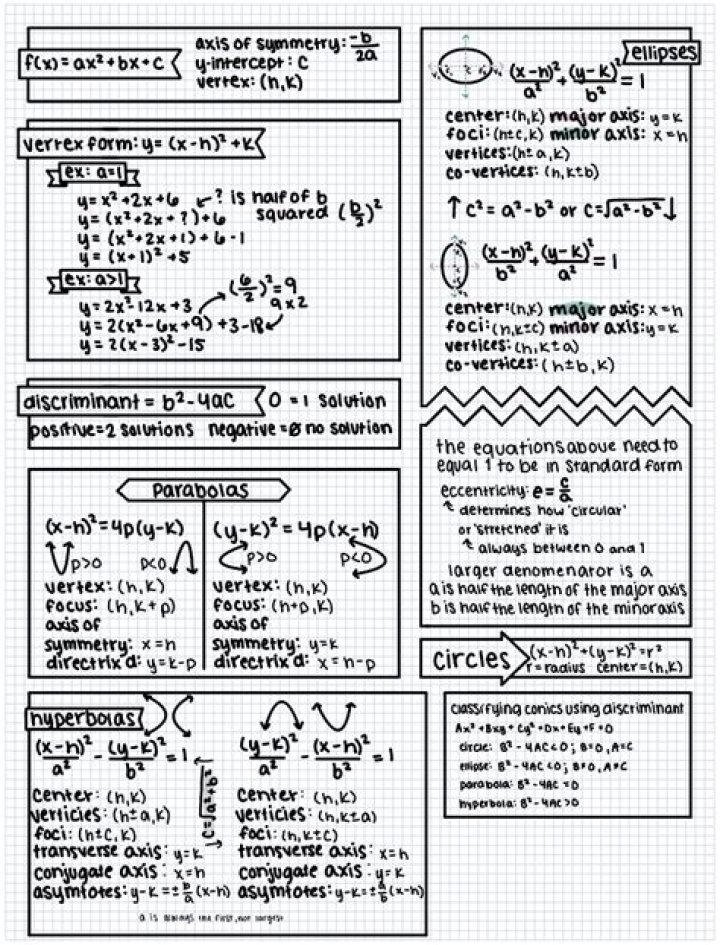 f(x) = ax² + bx + c
axis of symmetry: -b/2a
y-intercept: c
vertex: (h,k)
vertex form: y = (x-h)² + k
ex: a=1
y = x² + 2x + 6
y = (x² + 2x + ?) + 6
y = (x² + 2x + 1) + 6 - 1
y = (x+1)² + 5
? is half of b
squared (b/2)²
ex: a>1
y = 2x² - 12x + 3
y = 2(x² - 6x + 9) + 3 - 18
y = 2(x - 3)² - 15
(6/2)² = 9
9 x 2
discriminant = b² - 4ac
0 = 1 solution
positive = 2 solutions negative = ∅ no solution
parabolas
(x-h)² = 4p(y-k)
p>0 p<0
vertex: (h,k)
focus: (h, k+p)
axis of
symmetry: x=h
directrix d: y=k-p
(y-k)² = 4p(x-h)
p>0 p<0
vertex: (h,k)
focus: (h+p,k)
axis of
symmetry: y=k
directrix d: x=h-p
hyperbolas
(x-h)²/a² - (y-k)²/b² = 1
center: (h,k)
verticies: (h±a,k)
foci: (h±c,k)
transverse axis: y=k
conjugate axis: x=h
asymtotes: y-k=±b/a(x-h)
c=√a²+b²
(y-k)²/a² - (x-h)²/b² = 1
center: (h,k)
verticies: (h,k±a)
foci: (h,k±c)
transverse axis: x=h
conjugate axis: y=k
asymtotes: y-k=±a/b(x-h)
a is always the first, not largest
ellipses
(x-h)²/a² + (y-k)²/b² = 1
center: (h,k) major axis: y=k
foci: (h±c,k) minor axis: x=h
vertices: (h±a,k)
co-vertices: (h,k±b)
↑ c² = a² - b² or c=√a²-b² ↓
(x-h)²/b² + (y-k)²/a² = 1
center: (h,k) major axis: x=h
foci: (h,k±c) minor axis: y=k
vertices: (h,k±a)
co-vertices: (h±b,k)
the equations above need to
equal 1 to be in standard form
eccentricity: e = c/a
determines how 'circular'
or 'stretched' it is
always between 0 and 1
larger denomenator is a
a is half the length of the major axis
b is half the length of the minor axis
circles
(x-h)² + (y-k)² = r²
r=radius center=(h,k)
classifying conics using discriminant
Ax² + Bxy + Cy² + Dx + Ey + F = 0
circle: B² - 4AC < 0; B=0, A=C
ellipse: B² - 4AC < 0; B≠0, A≠C
parabola: B² - 4AC = 0
hyperbola: B² - 4AC > 0